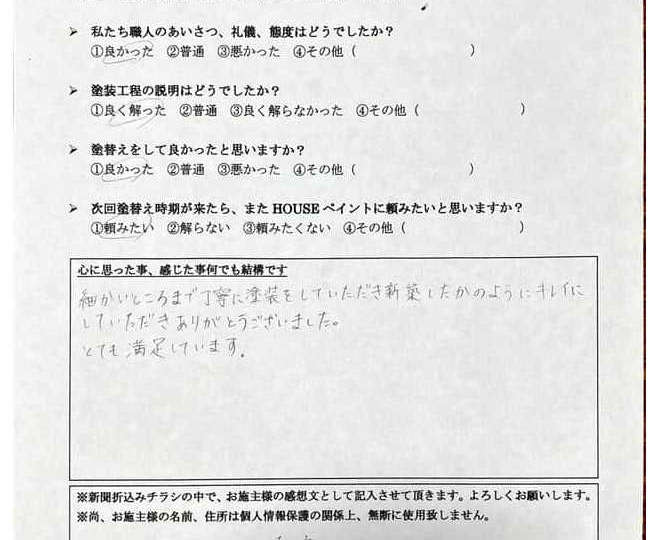 ➢ 私たち職人のあいさつ、礼儀、態度はどうでしたか？
①良かった ②普通 ③悪かった ④その他（ ）
➢ 塗装工程の説明はどうでしたか？
①良く解った ②普通 ③良く解らなかった ④その他（ ）
➢ 塗替えをして良かったと思いますか？
①良かった ②普通 ③悪かった ④その他（ ）
➢ 次回塗替え時期が来たら、また HOUSE ペイントに頼みたいと思いますか？
①頼みたい ②解らない ③頼みたくない ④その他（ ）
心に思った事、感じた事何でも結構です
細かいところまで丁寧に塗装をしていただき新築したかのようにキレイに
していただきありがとうございました。
とても満足しています。
※新聞折込みチラシの中で、お施主様の感想文として記入させて頂きます。よろしくお願いします。
※尚、お施主様の名前、住所は個人情報保護の関係上、無断に使用致しません。